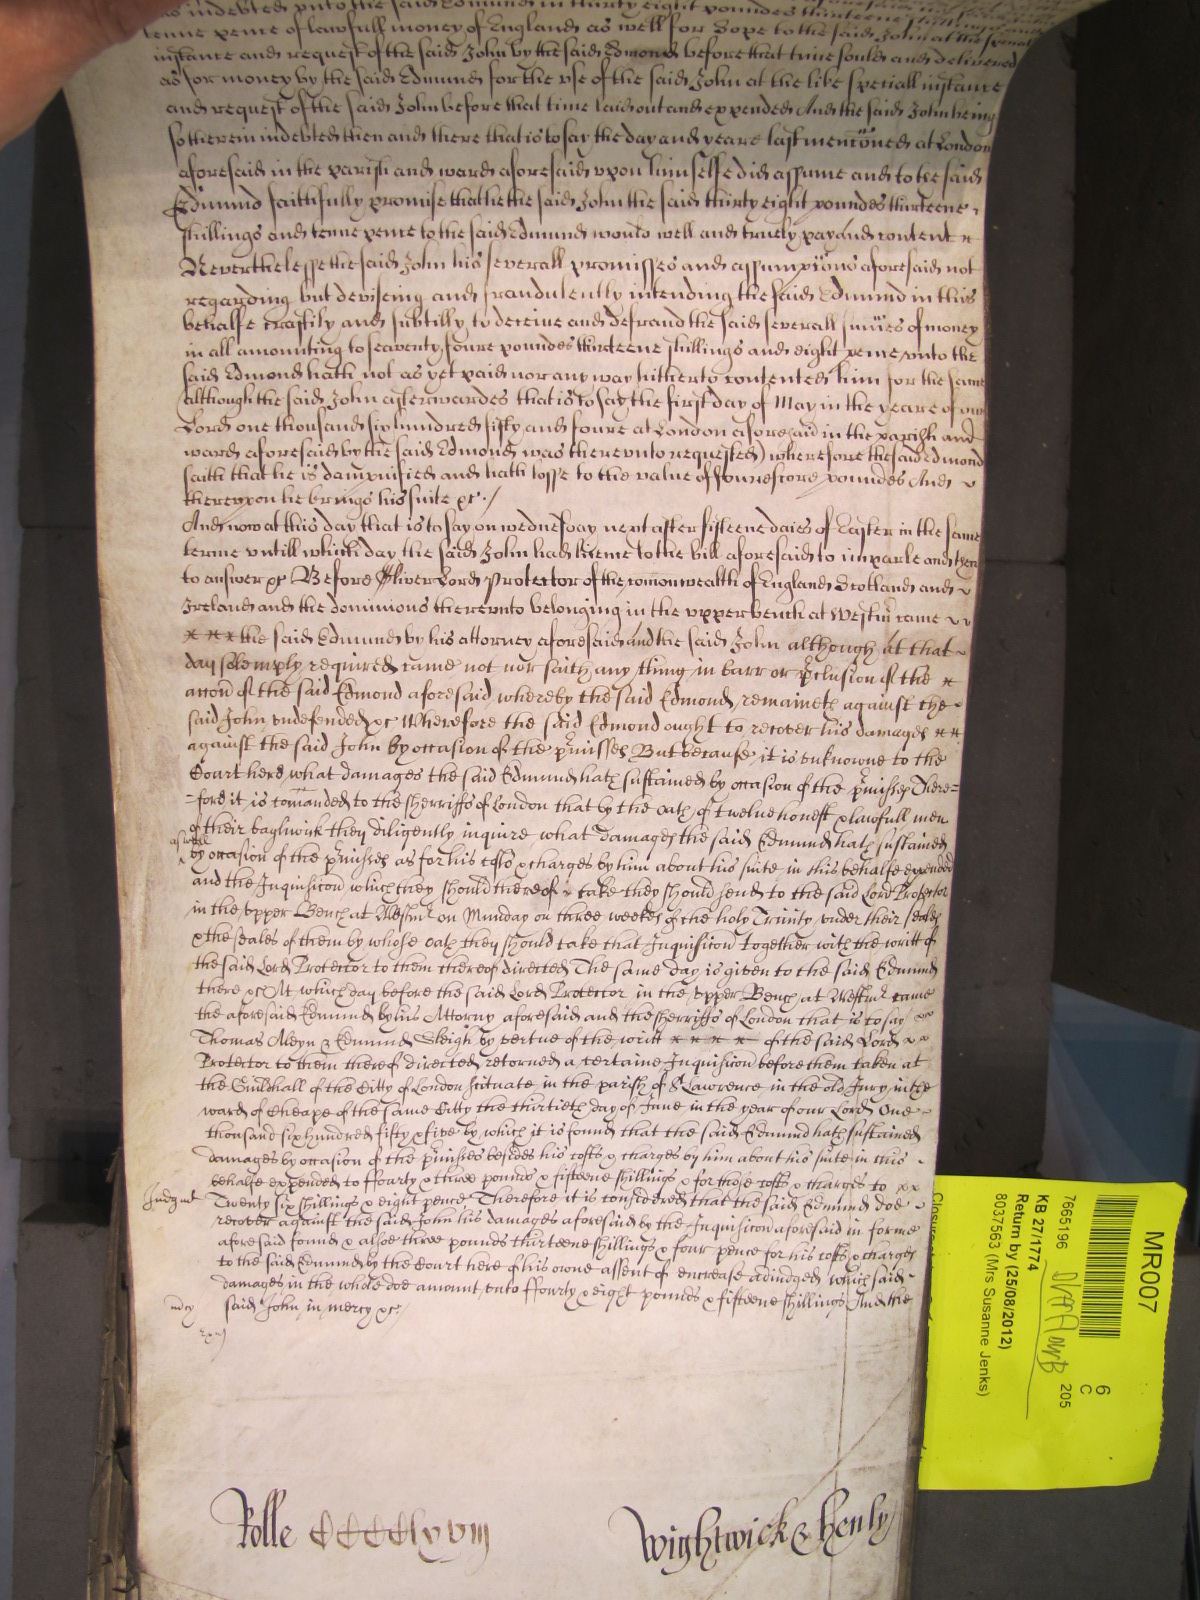 as indebted vnto the said Edmund in thirty eight poundes thirteene shillings
tenne pence of lawfull money of England as well for Sope to the said John at the speciall
instance and request of the said John by the said Edmond before that time sould and delivered
as for money by the said Edmund for the vse of the said John at the like speciall instance
and request of the said John before that time laid out and expended And the said John being
so therein indebted then and there that is to say the day and yeare last mencōned at London
aforesaid in the parish and ward aforesaid vpon himselfe did assume and to the said
Edmund faithfully promise that he the said John the said thirty eight poundes thirteene
shillings and tenne pence to the said Edmund would well and truely pay and content
Neverthelesse the said John his severall promisses and assumpcōns aforesaid not
regarding but deviseing and fraudulently intending the said Edmund in this
behalfe craftily and subtilly to deceive and defraud the said severall sum̄es of money
in all amounting to seaventy foure poundes thirteene shillings and eight pence vnto the
said Edmond hath not as yet paid nor any way hitherto contented him for the same
although the said John afterwardes that is to say the first day of May in the yeare of our
Lord one thousand six hundred fifty and foure at London aforesaid in the parish and
ward aforesaid by the said Edmond was therevnto requested) wherefore the said Edmond
saith that he is dampnified and hath losse to the value of fourescore poundes And
therevpon he brings his suite &c./
And now at this day that is to say on wednesday next after fifteene daies of Easter in the same
terme vntill which day the said John had licence to the bill aforesaid to imparle and then
to answer &c Before Oliver Lord Protector of the com̄onwealth of England Scotland and
Ireland and the dominions therevnto belonging in the vpper bench at Westm̄ came
the said Edmund by his attorney aforesaid and the said John although at that
day solemply required came not nor saith any thing in barr or p̄clusion of the
accōn of the said Edmond aforesaid whereby the said Edmond remaineth against the
said John vndefended &c Wherefore the said Edmond ought to recover his damages
against the said John by occasion of the p̄misses But because it is vnknowne to the
Court here what damages the said Edmund hath sustained by occasion of the p̄misses There=
=fore it is com̄anded to the sherriffs of London that by the oath of twelve honest & lawfull men
of their baylywick they diligently inquire what damages the said Edmund hath sustained
aswell
by occasion of the p̄misses as for his costs & charges by him about his suite in this behalfe expended
and the Inquisicōn which they should thereof take they should send to the said Lord Protector
in the vpper Bench at Westm̄ on Munday on three weekes of the holy Trinity vnder their seales
& the seales of them by whose oath they should take that Inquisicōn together with the writt of
the said Lord Protector to them thereof directed The same day is given to the said Edmund
there &c At which day before the said Lord Protector in the vpper Bench at Westm̄ came
the aforesaid Edmund by his Attorny aforesaid and the sherriffs of London that is to say
Thomas Aleyn & Edmund Sleigh by vertue of the writt of the said Lord
Protector to them thereof directed retorned a certaine Inquisicōn before them taken at
the Guildhall of the Citty of London scituate in the parish of St Lawrence in the old Jury in the
ward of Cheape of the same Citty the thirtieth day of June in the year of our Lord One
thousand six hundred fifty & five by which it is found that the said Edmund hath sustained
damages by occasion of the p̄misses besides his costs & charges by him about his suite in this
behalfe expended to ffourty & three pounds & fifteene shillings & for those costs & charges to
Judgmt
Twenty six shillings & eight pence Therefore it is considered that the said Edmund doe
recover against the said John his damages aforesaid by the Inquisicōn aforesaid in forme
aforesaid found & alsoe three pounds thirteene shillings & four pence for his costs & charges
to the said Edmund by the Court here of his owne assent of encrease adiudged which said
damages in the whole doe amount vnto ffourty & eight pounds & fifteene shillings And the
mcy
said John in mercy &c/
Rolle CCCClxviij
Wightwick & Henly
MR007
6
C
205
7665196
KB 27/1774
Return by (25/08/2012)
8037563 (Mrs Susanne Jenks)